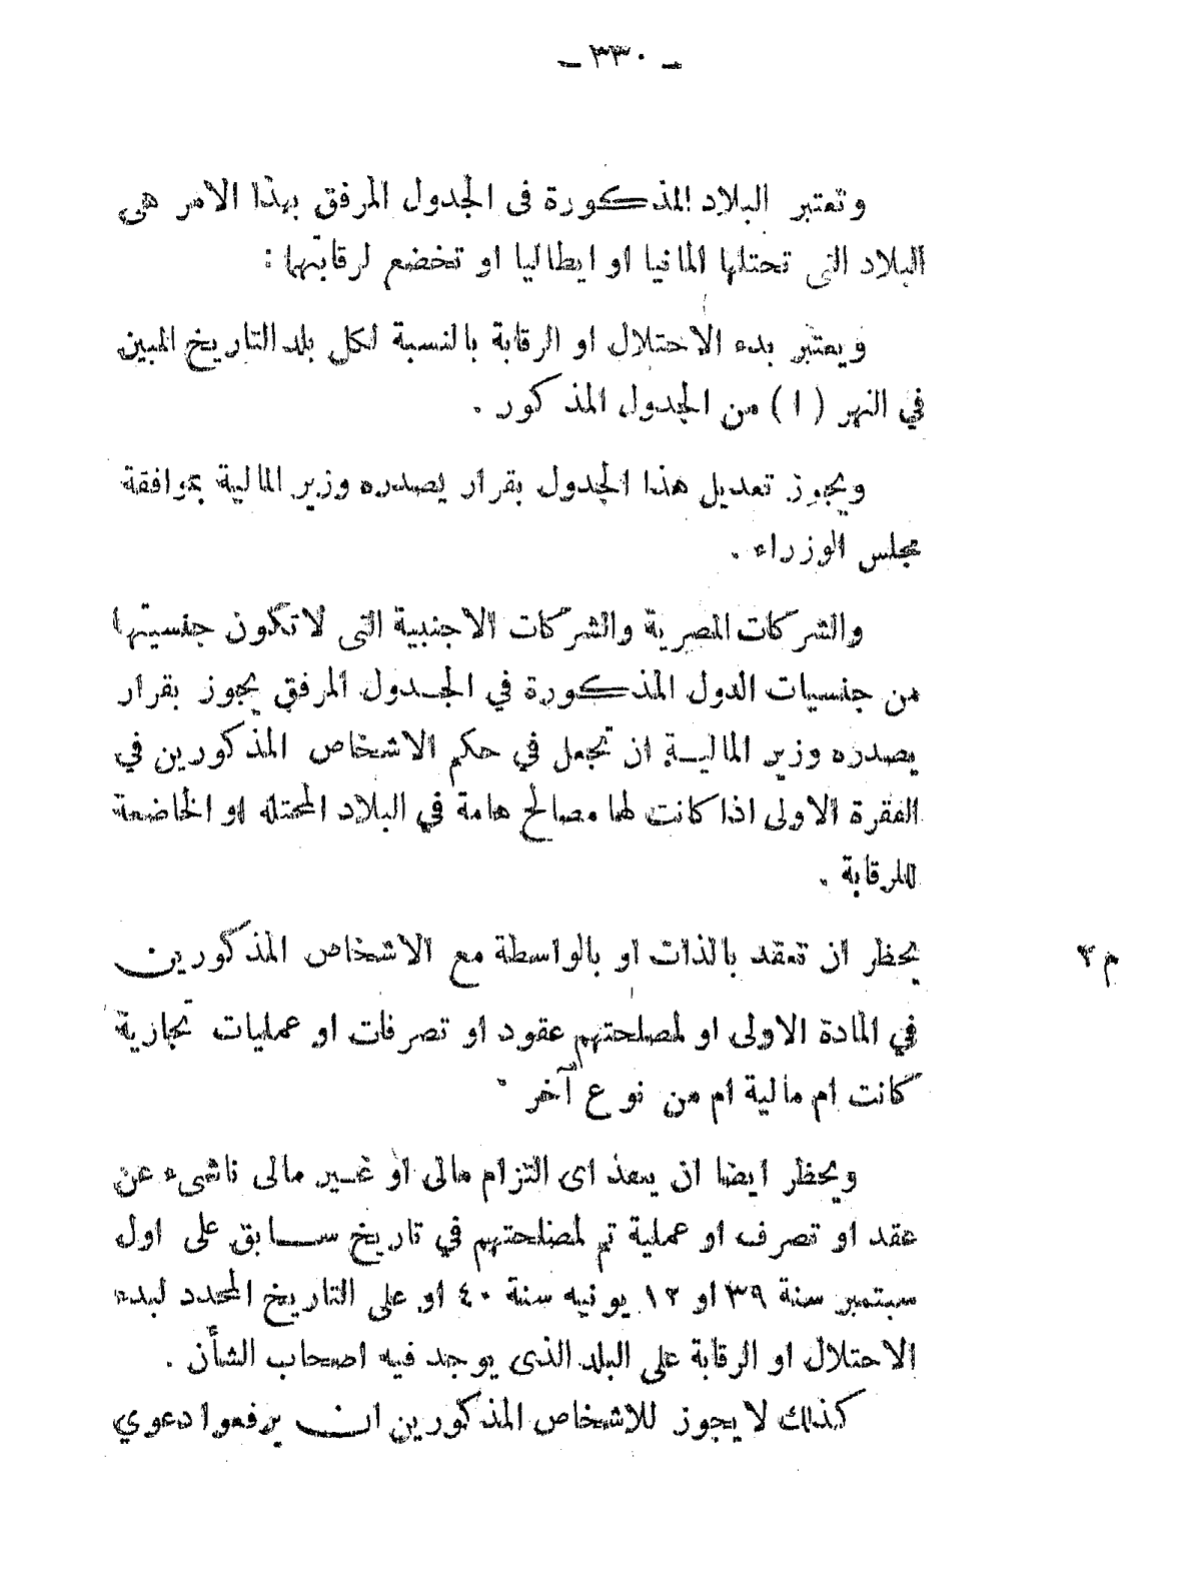 ـ ٣٣٠ ـ
وتعتبر البلاد المذكورة فى الجدول المرفق بهذا الامر هى
البلاد التى تحتلها المانيا او ايطاليا او تخضع لرقابتها :
ويعتبر بدء الاحتلال او الرقابة بالنسبة لكل بلد التاريخ المبين
في النهر ( ا ) من الجدول المذكور .
ويجوز تعديل هذا الجدول بقرار يصدره وزير المالية بموافقة
مجلس الوزراء .
والشركات المصرية والشركات الاجنبية التى لا تكون جنسيتها
من جنسيات الدول المذكورة في الجدول المرفق يجوز بقرار
يصدره وزير المالية ان تجعل في حكم الاشخاص المذكورين في
الفقرة الاولى اذا كانت لها مصالح هامة في البلاد المحتله او الخاضعة
للرقابة .
م ٢ يحظر ان تعقد بالذات او بالواسطة مع الاشخاص المذكورين
في المادة الاولى او لمصلحتهم عقود او تصرفات او عمليات تجارية
كانت ام مالية ام من نوع آخر .
ويحظر ايضا ان ينفذ اى التزام مالى او غير مالى ناشىء عن
عقد او تصرف او عملية تم لمصلحتهم في تاريخ سابق على اول
سبتمبر سنة ٣٩ او ١٢ يونيه سنة ٤٠ او على التاريخ المحدد لبدء
الاحتلال او الرقابة على البلد الذى يوجد فيه اصحاب الشأن .
كذلك لا يجوز للاشخاص المذكورين ان يرفعوا دعوي